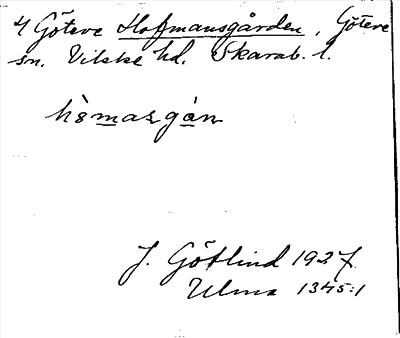 4 Göteve Hoffmansgården, Göteve
sn. Vilske hd. Skarab. l.
hòmasgán
J. Götlind 1927.
Ulma 1345:1